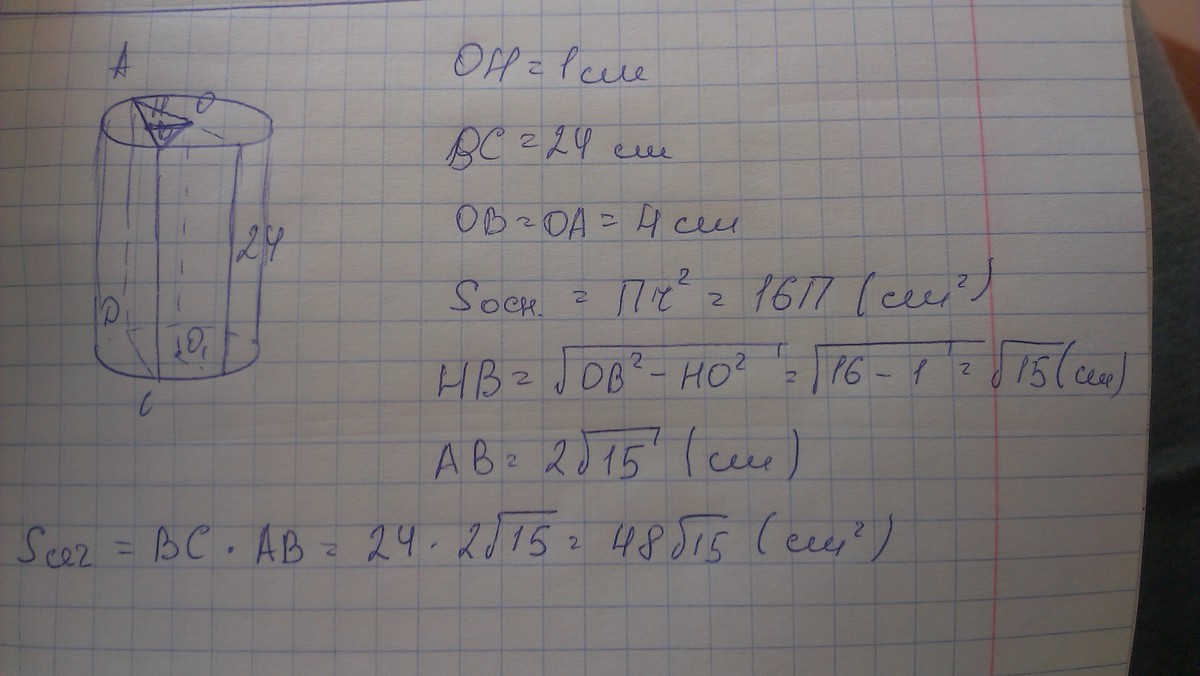 A
H
O
24
D
O₁
C
OH = 1 см
BC = 24 см
OB = OA = 4 см
Sосн. = Пr² = 16П (см²)
HB = √OB² − HO² = √16 − 1 = √15 (см)
AB = 2√15 (см)
Sсеч = BC · AB = 24 · 2√15 = 48√15 (см²)